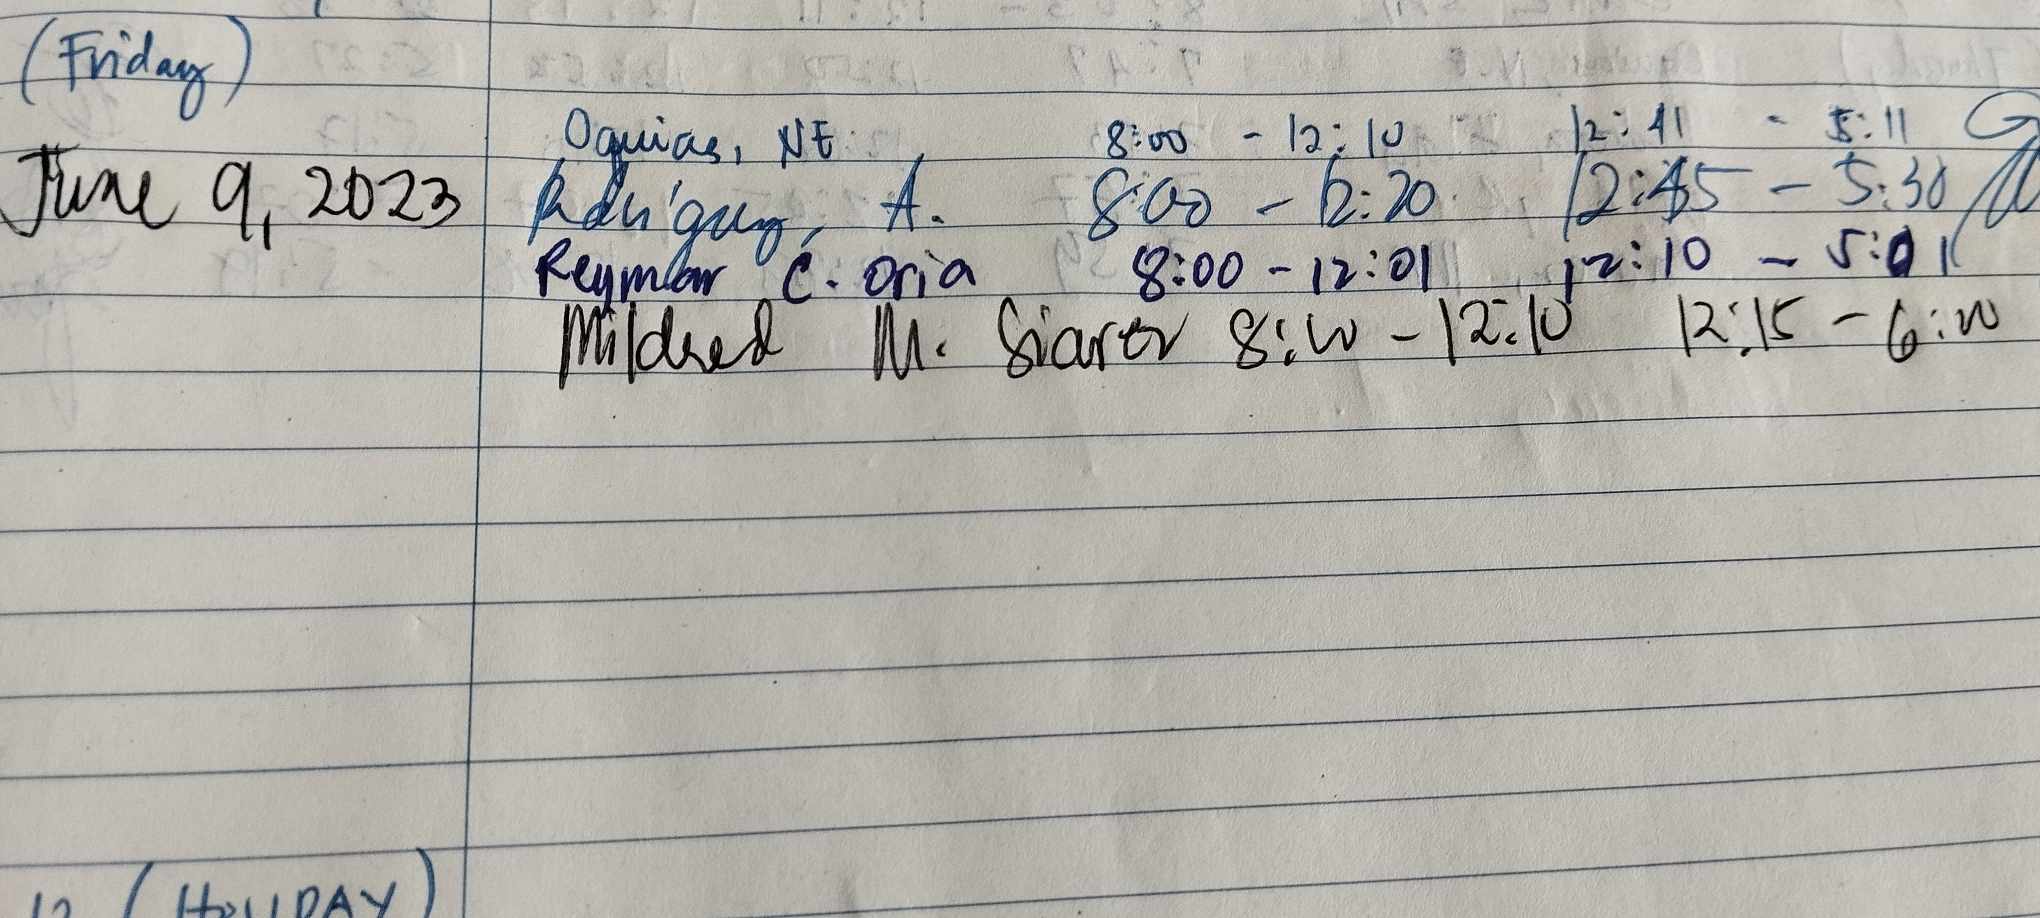 (Friday)
Oquias, NE 8:00 - 12:10 12:41 - 5:11
June 9, 2023 Rodriguez, A. 8:00 - 12:20 12:45 - 5:30
Reymar C. Oria 8:00 - 12:01 12:10 - 5:01
Mildred M. Siarez 8:00 - 12:10 12:15 - 6:00
12 (HOLIDAY)